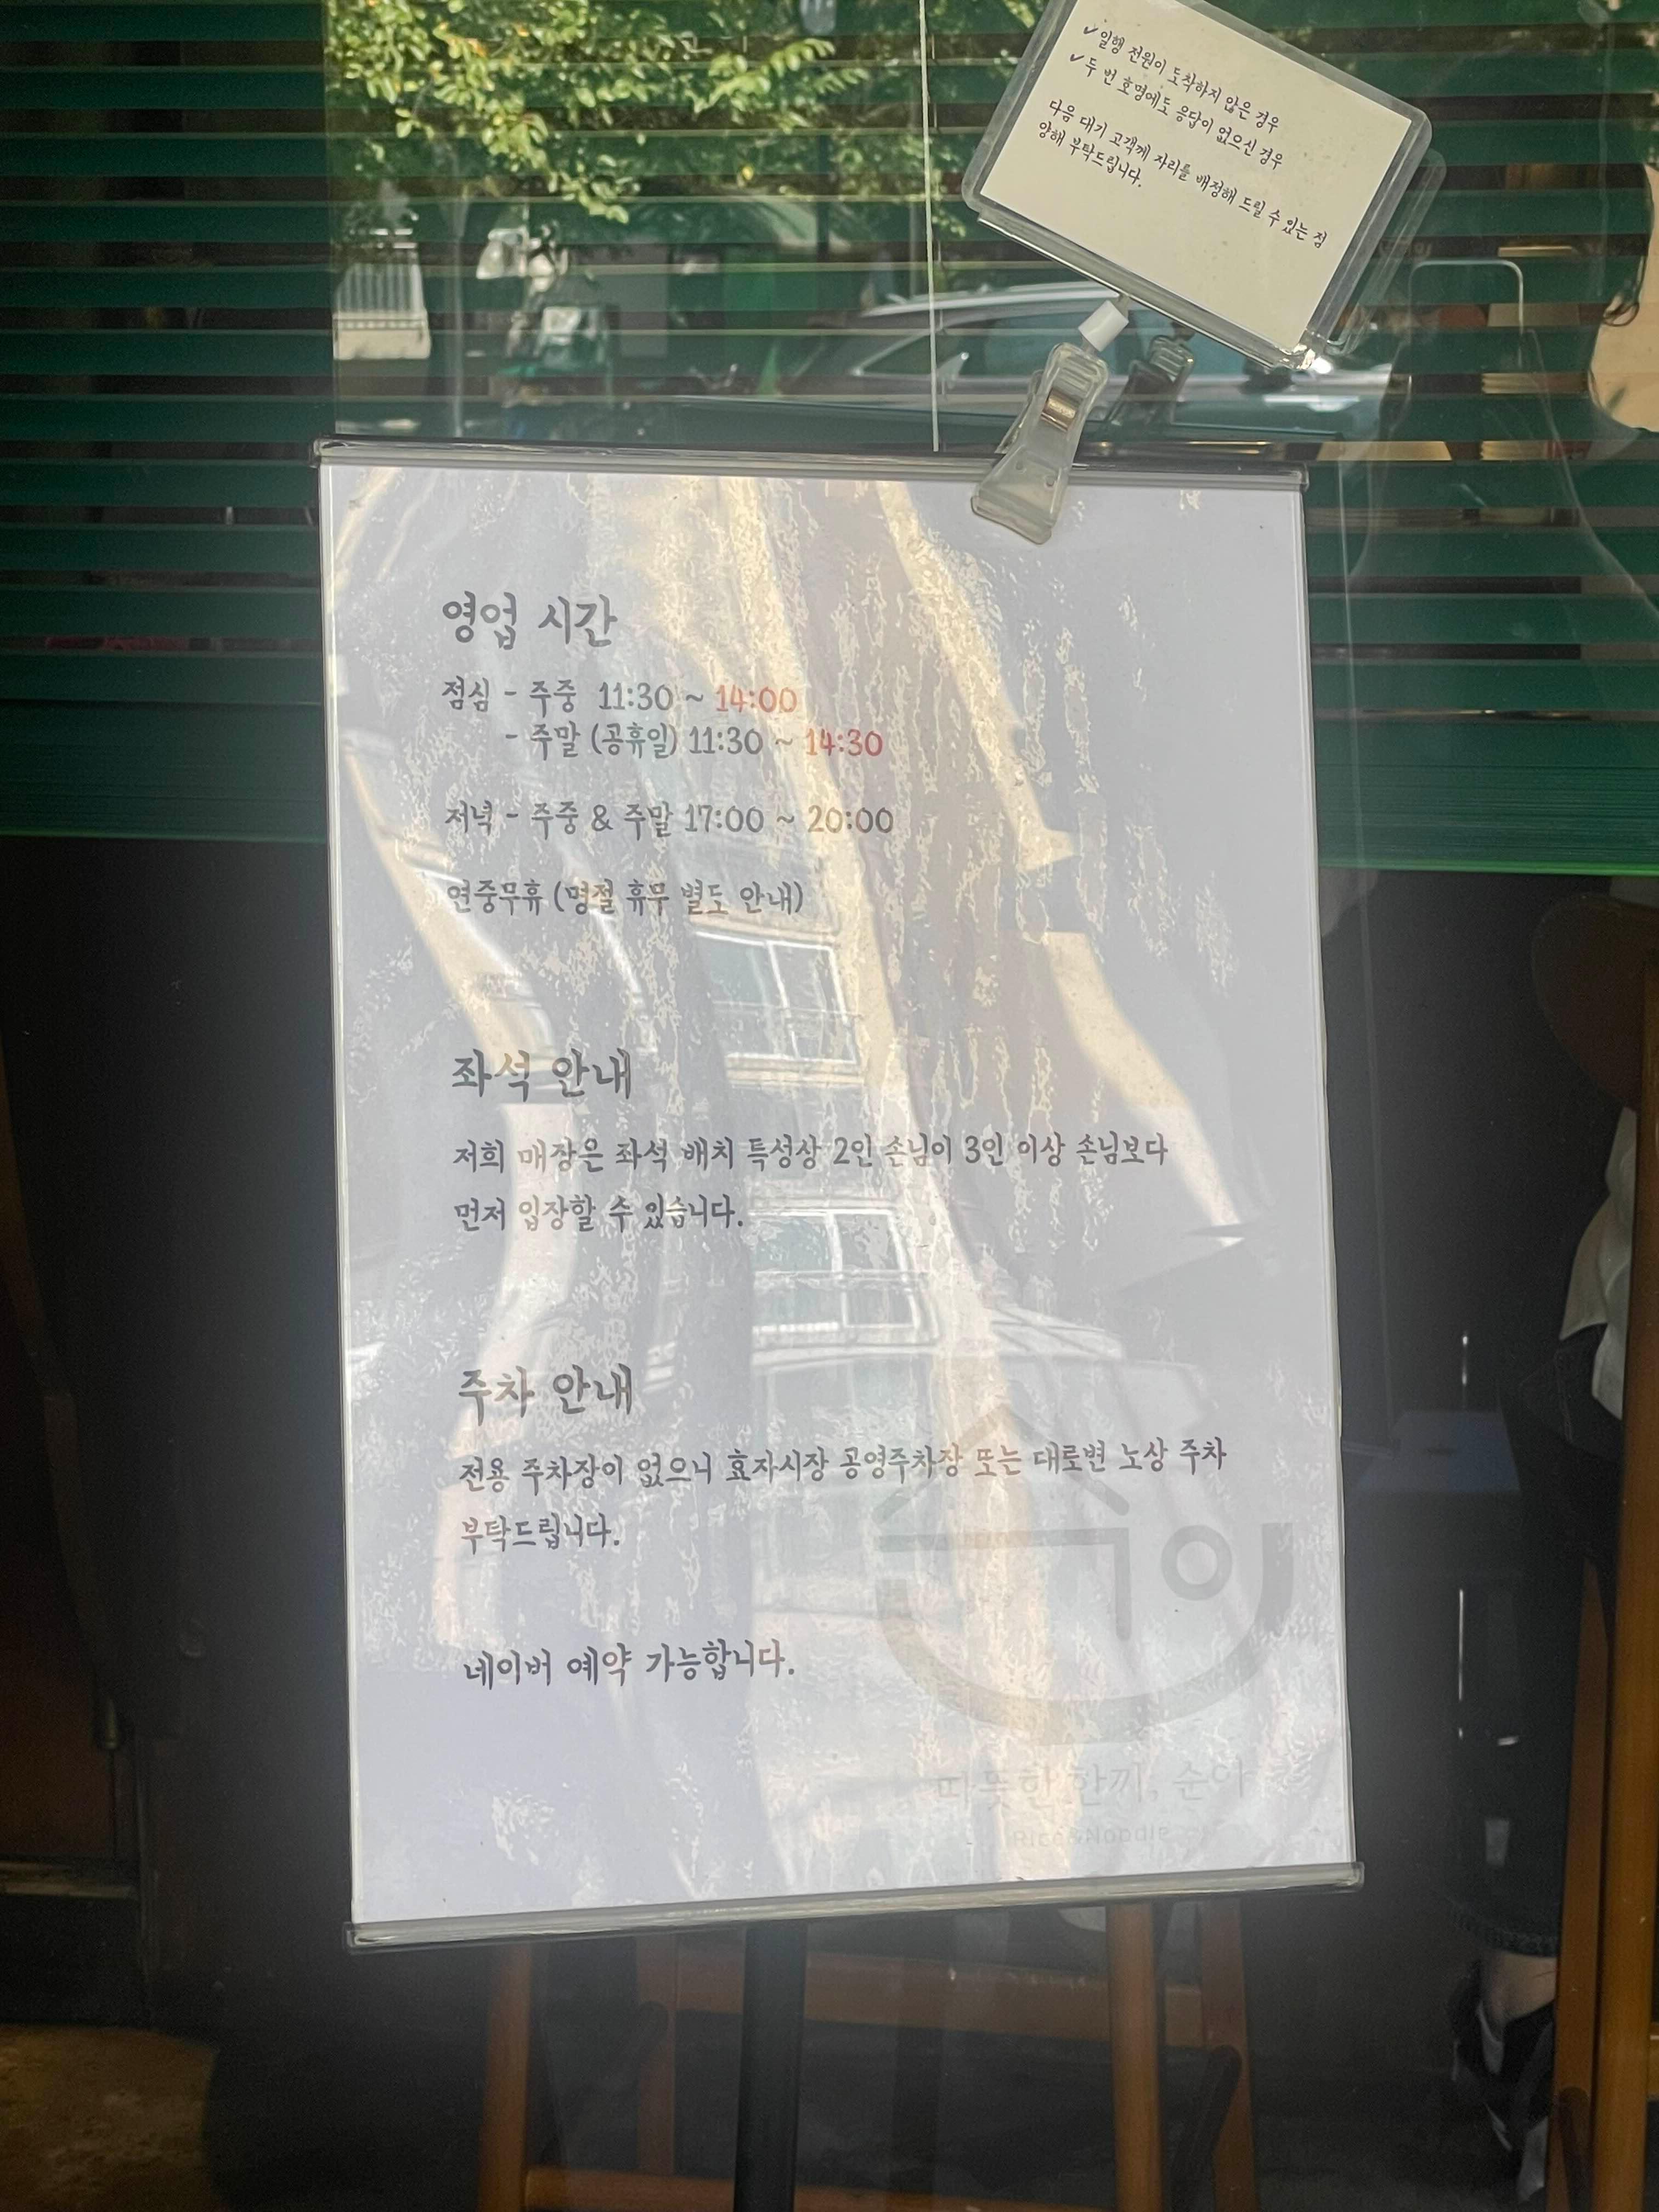 ✓ 일행 전원이 도착하지 않은 경우
✓ 두 번 호명에도 응답이 없으신 경우
다음 대기 고객께 자리를 배정해 드릴 수 있는 점
양해 부탁드립니다.
영업 시간
점심 - 주중 11:30 ~ 14:00
- 주말 (공휴일) 11:30 ~ 14:30
저녁 - 주중 & 주말 17:00 ~ 20:00
연중무휴 (명절 휴무 별도 안내)
좌석 안내
저희 매장은 좌석 배치 특성상 2인 손님이 3인 이상 손님보다
먼저 입장할 수 있습니다.
주차 안내
전용 주차장이 없으니 효자시장 공영주차장 또는 대로변 노상 주차
부탁드립니다.
네이버 예약 가능합니다.
따뜻한 한끼, 순아